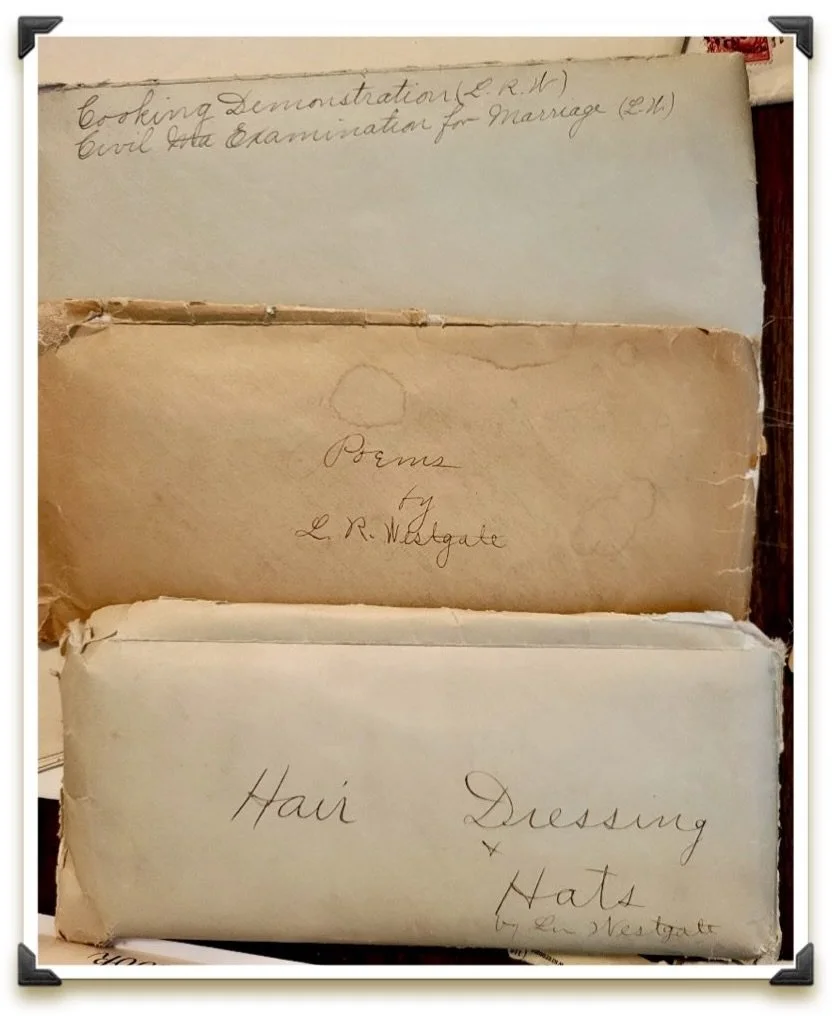 Cooking Demonstration (L. R. W)
Civil Examination for Marriage (L.W)
Poems
by
L. R. Westgate
Hair Dressing
+
Hats
by Westgate